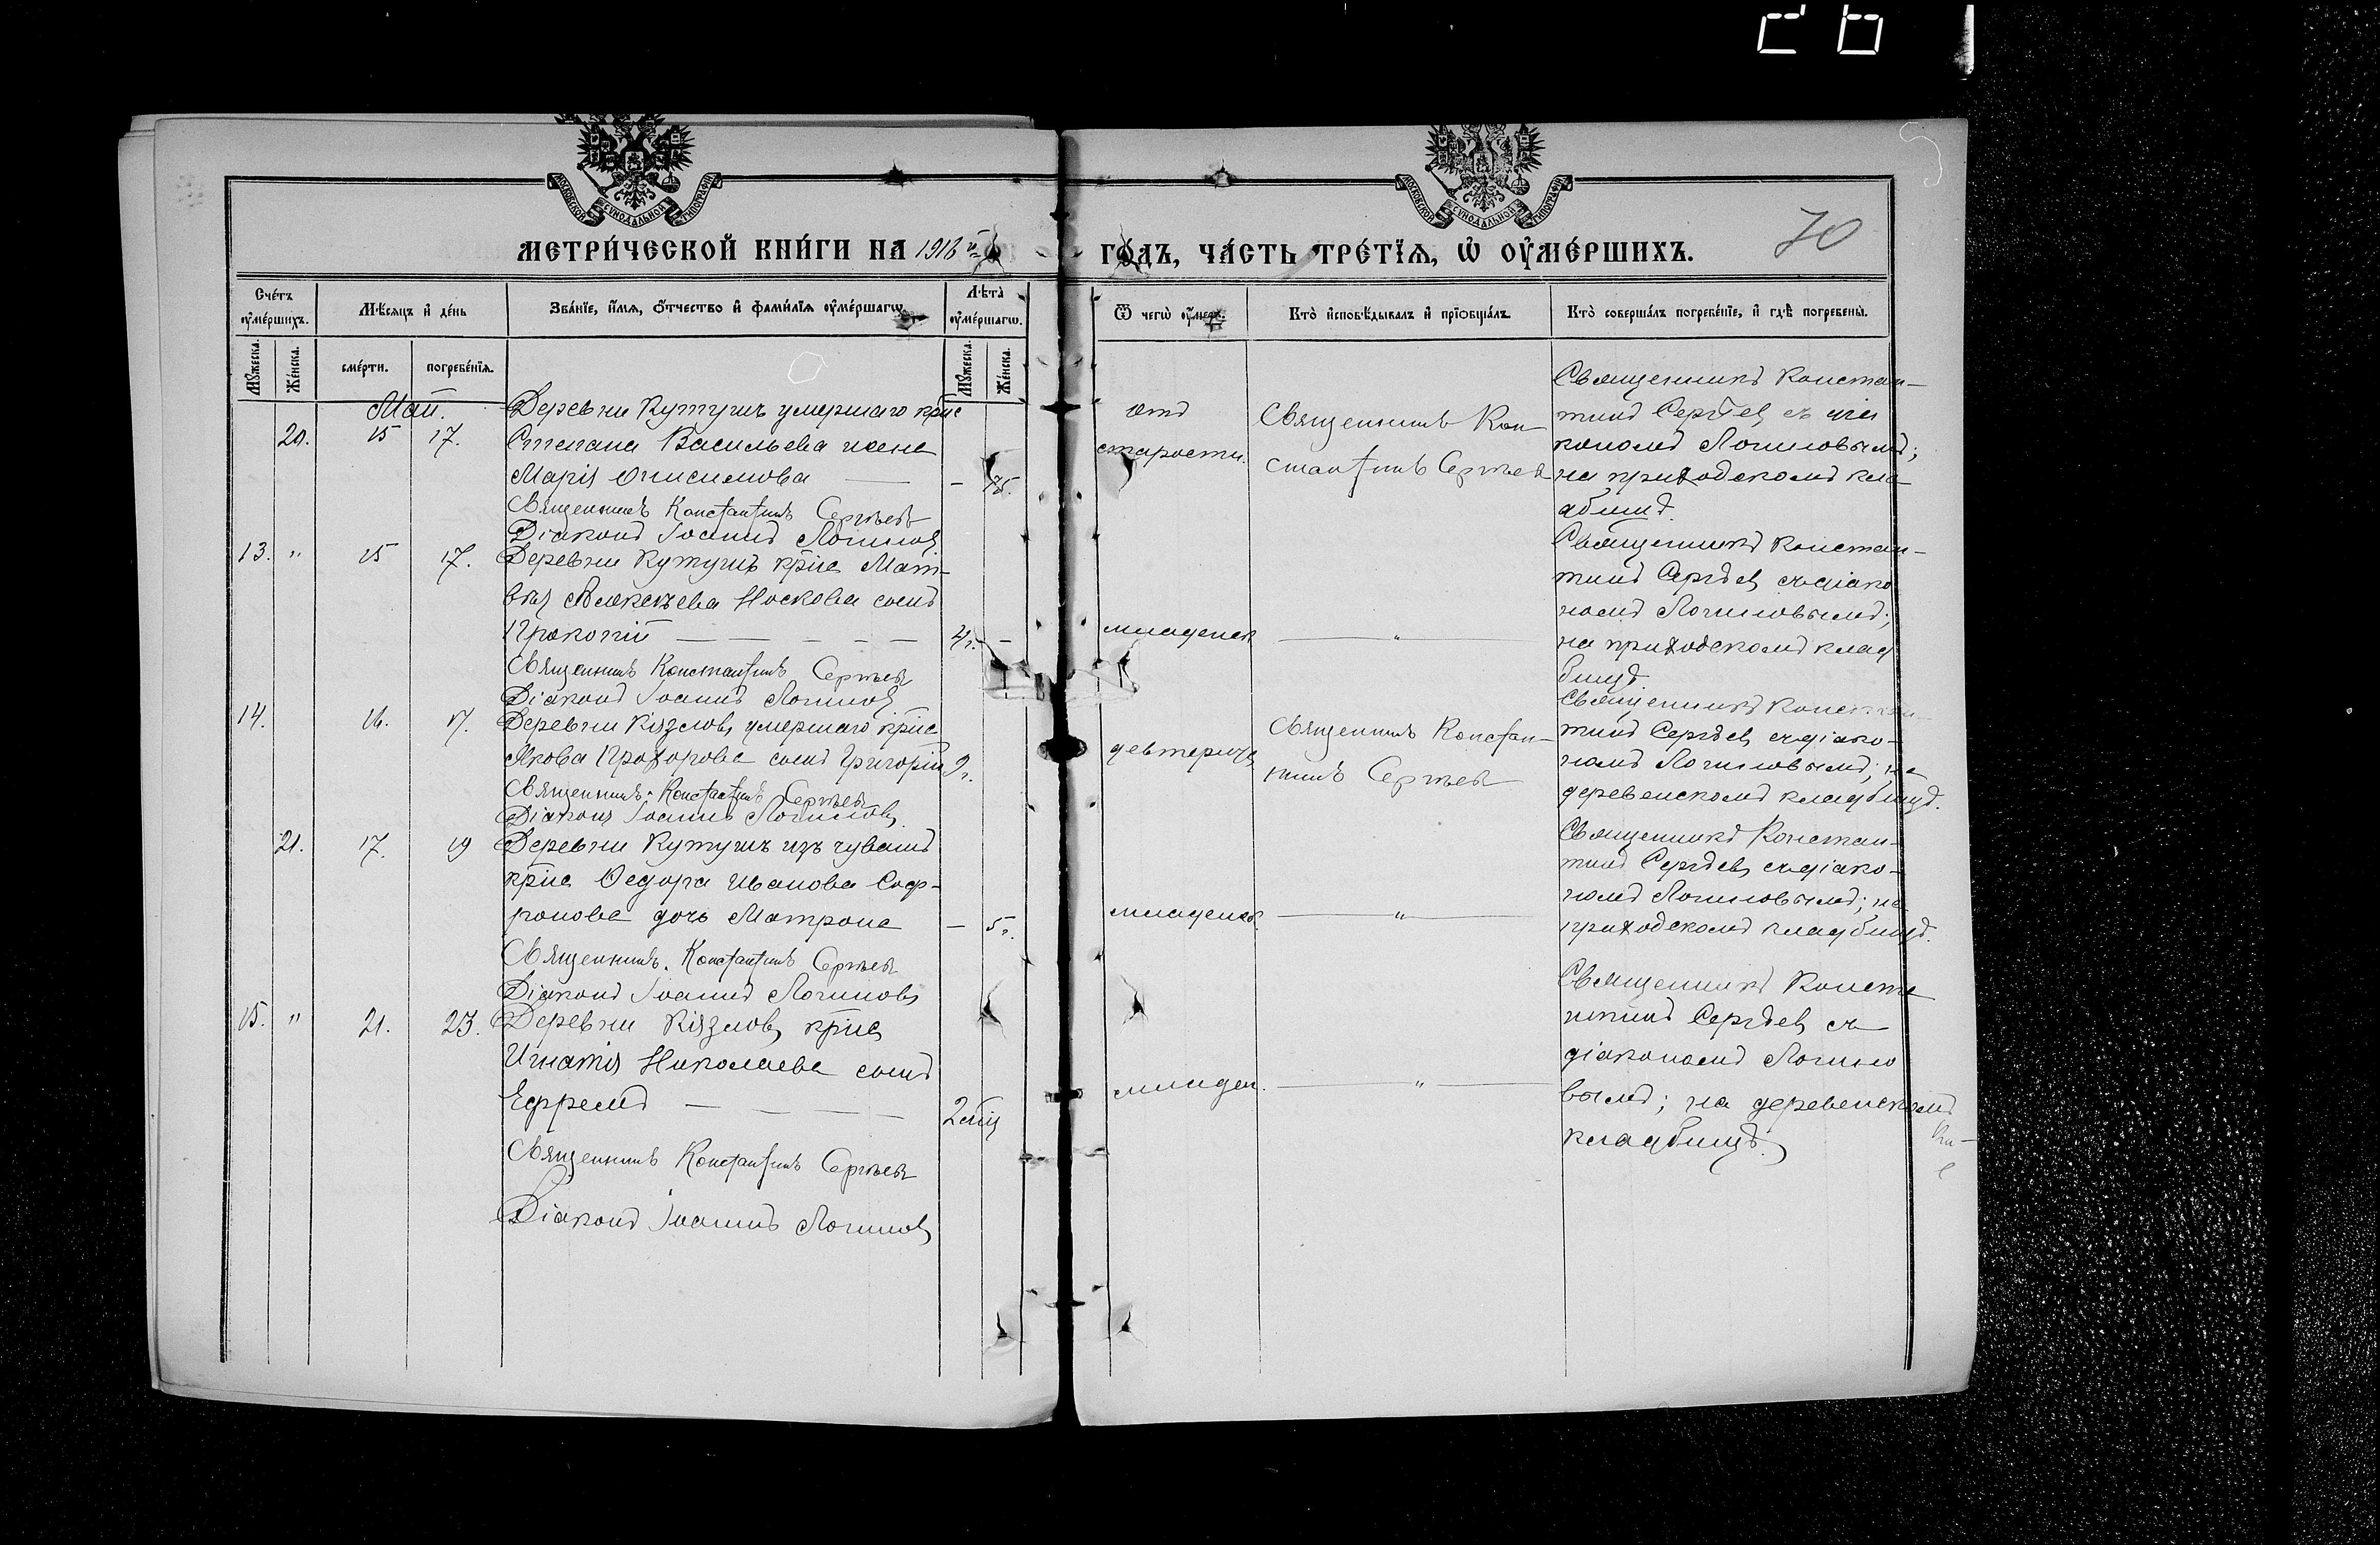 МОСКОВСКОЙ СУНОДАЛЬНОЙ ТИПОГРАФІИ
МОСКОВСКОЙ СУНОДАЛЬНОЙ ТИПОГРАФІИ
70
МЕТРИ́ЧЕСКОЙ КНИ́ГИ НА 1918 й
ГО́ДЪ, ЧА́СТЬ ТРЕ́ТЇѦ, Ѡ҆ ОУ҆МЕ́РШИХЪ.
Сче́тъ оу҆ме́ршихъ.
Мѣ́сяцъ и҆ де́нь
Зва́нїе, и҆́мя, ѻ҆́тчество и҆ фами́лїя оу҆ме́ршагѡ.
Лѣ́та оу҆ме́ршагѡ.
Ѿ чегѡ̀ оу҆́меръ.
Кто̀ и҆сповѣ́дывалъ и҆ прїѡбща́лъ.
Кто̀ соверша́лъ погребе́нїе, и҆ гдѣ̀ погребены̀.
Мꙋ́жеска.
Же́нска.
сме́рти.
погребе́нїя.
Мꙋ́жеска.
Же́нска.
Май.
20. 15 17.
Деревни Кутушъ умершаго крнс
Степана Васильева жена
Марія Онисимова — — 75.
Священникъ Константинъ Сергѣевъ
Діаконъ Іоаннъ Логиновъ
отъ
старости.
Священникъ Кон-
стантинъ Сергѣевъ
Священникъ Констан-
тинъ Сергѣевъ съ діа
кономъ Логиновымъ;
на приходскомъ кла
дбищѣ.
13. " 15 17.
Деревни Кутушъ крнс Мат-
вѣя Алексѣева Носкова сынъ
Прокопій — — — — — 4г. —
Священникъ Константинъ Сергѣевъ
Діаконъ Іоаннъ Логиновъ
младенч.
— " —
Священникъ Констан-
тинъ Сергѣевъ съ діако
номъ Логиновымъ;
на приходскомъ клад
бищѣ.
14. 16. 17.
Деревни Кіязловъ умершаго крнс
Якова Прохорова сынъ Григорій 9г.
Священникъ Константинъ Сергѣевъ
Діаконъ Іоаннъ Логиновъ.
Священникъ Констан-
тинъ Сергѣевъ
Священникъ Констан-
тинъ Сергѣевъ съ діако-
номъ Логиновымъ; на
деревенскомъ кладбищѣ.
21. 17. 19
Деревни Кутушъ изъ чувашъ
крнс Ѳедора Иванова Соф-
ронова дочь Матрона — 5г.
Священникъ Константинъ Сергѣевъ
Діаконъ Іоаннъ Логиновъ
младенч.
— " —
Священникъ Констан-
тинъ Сергѣевъ съ діако-
номъ Логиновымъ; на
приходскомъ кладбищѣ.
15. " 21. 23.
Деревни Кіязловъ крнс
Игнатія Николаева сынъ
Ефремъ — — — — 2 мѣц
Священникъ Константинъ Сергѣевъ
Діаконъ Іоаннъ Логиновъ
младен.
— " —
Священникъ Конста
нтинъ Сергѣевъ съ
діакономъ Логино
вымъ; на деревенскомъ
кладбищѣ.